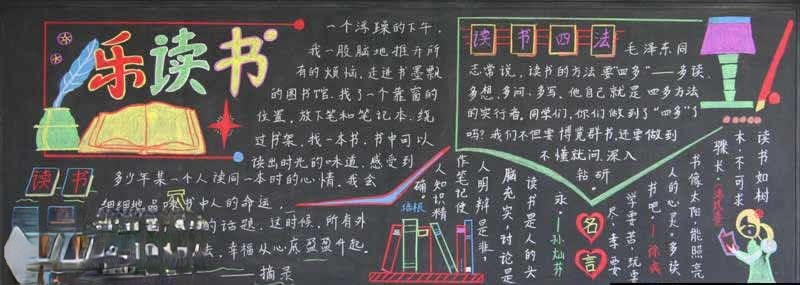 乐读书
一个浮躁的下午，
我一股脑地推开所
有的烦恼，走进书墨飘
的图书馆。找了一个靠窗的
位置，放下笔和笔记本，绕
过书架，找一本书，书中可以
读出时光的味道，感受到
读书
多少年某一个人读同一本时的心情，我会
细细地品味书中人的命运，
的话题，这时候，所有外
去，幸福从心底盈盈升起。
——摘录
读书四法
毛泽东同
志常说，读书的方法要“四多”——多读、
多想、多问、多写，他自己就是四多方法
的实行者，同学们，你们做到了“四多”了
吗？我们不但要博览群书，还要做到
不懂就问，深入
钻研。
读书如树
木，不可求
骤长。
书像太阳，能照亮
人的心灵，多读
书吧。
学要苦，玩要
尽，李要
名言
永。——孙灿芬
读书是人的头
脑充实，讨论是
人明辩是非，
作笔记使
人知识精
确。
培根